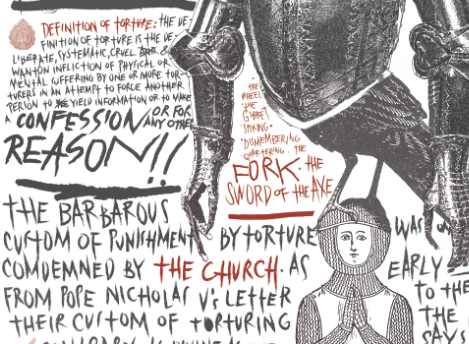 DEFINITION OF TORTURE: THE DE-
FINITION OF TORTURE IS THE DE-
LIBERATE, SYSTEMATIC, CRUEL &
WANTON INFLICTION OF PHYSICAL OR
MENTAL SUFFERING BY ONE OR MORE TOR-
TURERS IN AN ATTEMPT TO FORCE ANOTHER
PERSON TO YIELD INFORMATION OR TO MAKE
A CONFESSION OR FOR
ANY OTHER
REASON!!
THE
WHEEL
THE
GIBBET
DISMEMBERING
QUARTERING. THE
FORK. THE
SWORD OF THE AXE
THE BARBAROUS
CUSTOM OF PUNISHMENT BY TORTURE WAS
CONDEMNED BY THE CHURCH. AS EARLY
FROM POPE NICHOLAS V's LETTER TO THE
THEIR CUSTOM OF TORTURING THE
SAYS